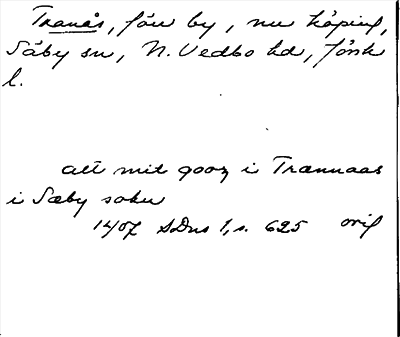 Tranås, förr by, nu köping,
Säby sn, N. Vedbo hd, Jönk
l.
alt mit gooz i Trannaas
i Sæby sokn
1407 SDns 1, s. 625 orig